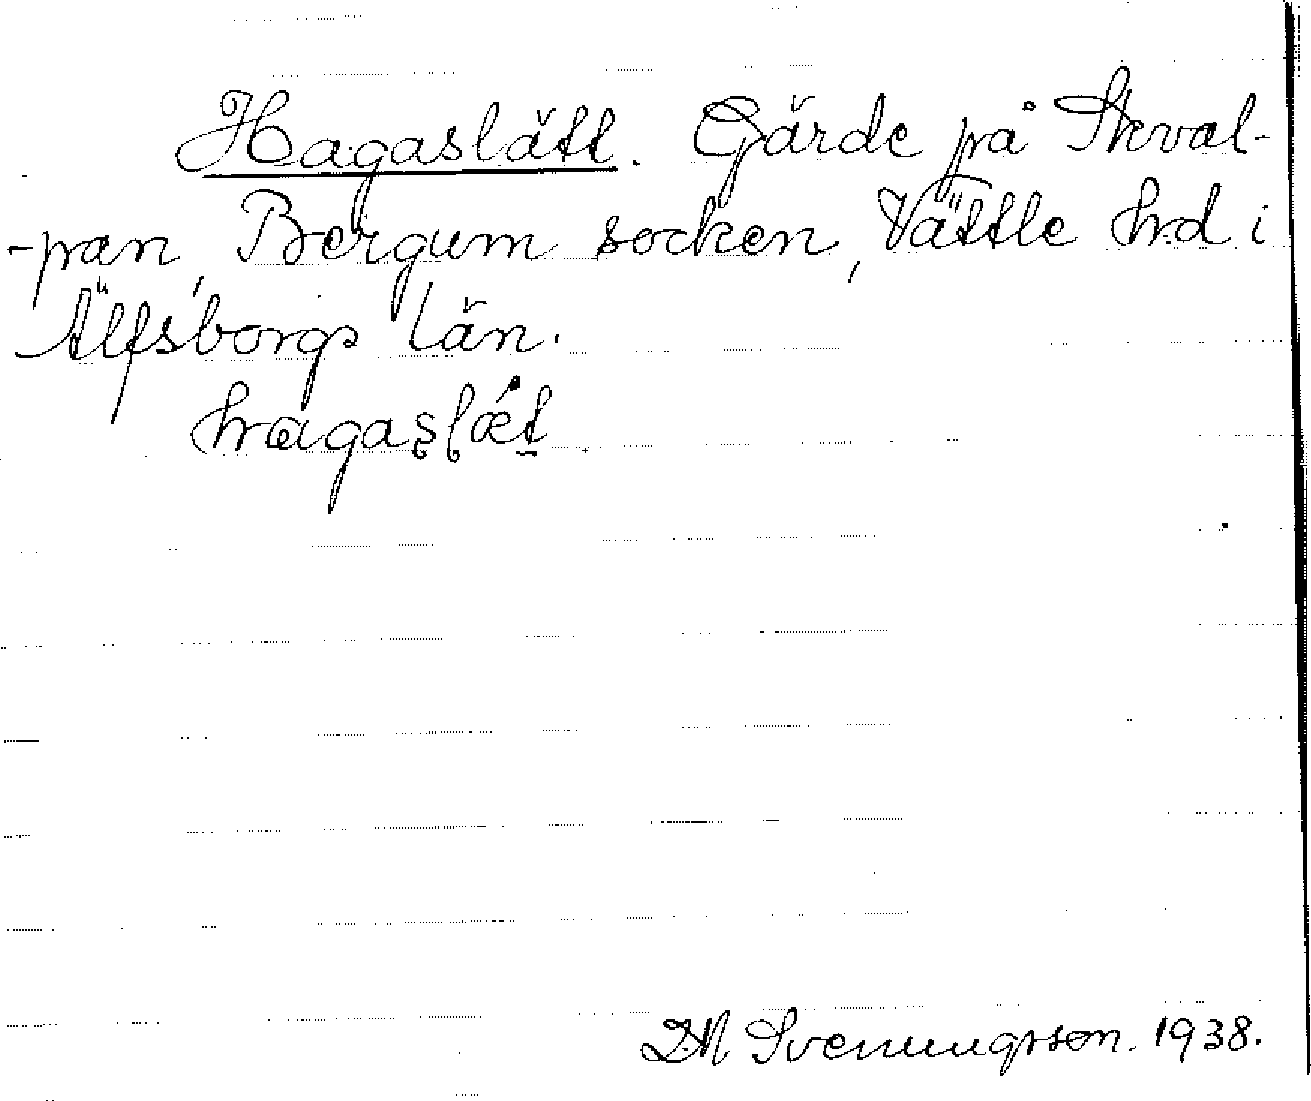 Hagaslätt. Gärde på Skval-
-pan, Bergum socken, Vättle hrd i
Älfsborgs län.
hagaslǽt
DM Svenungsson. 1938.